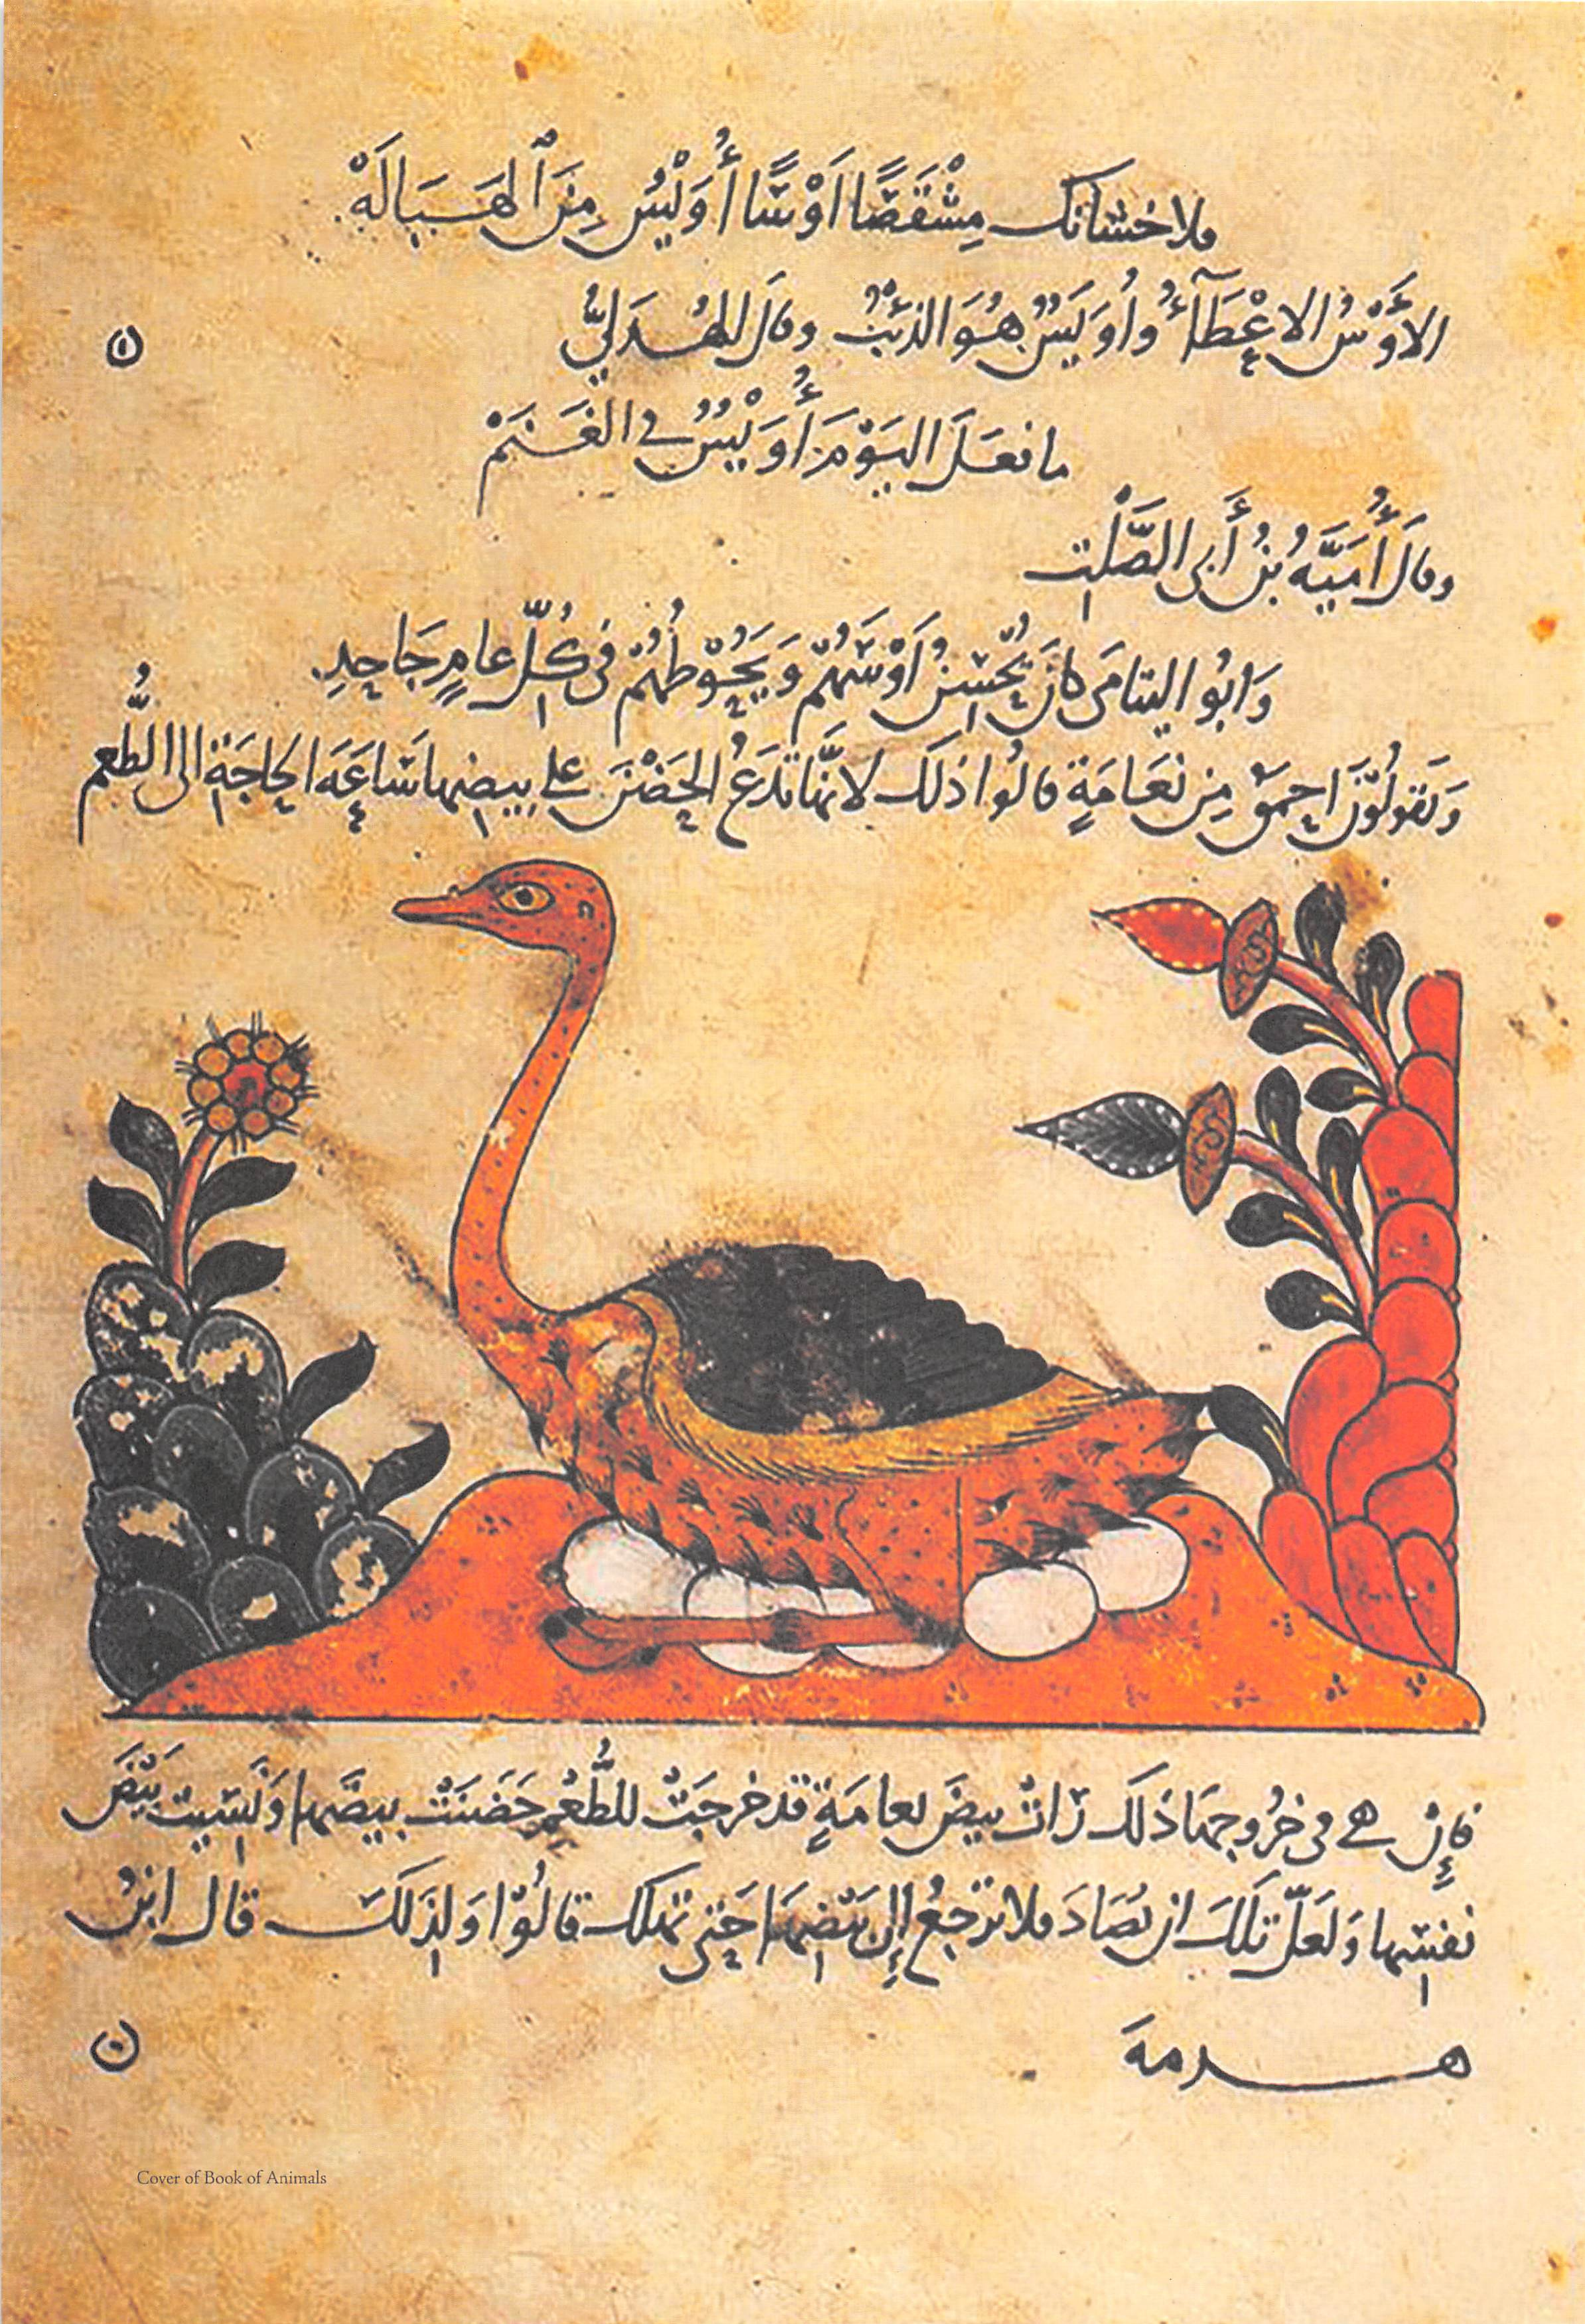 فلاحشانك مِشْقَصًا اَوْسًا أُوَيْسُ مِنَ ٱلهَبَالَهْ
الاَوْسُ الاعْطَآءُ وأُوَيسٌ هُوَ الذئبُ وقالَ الهُذَليُّ
ما فعَلَ اليَوْمَ أُوَيْسٌ في الغَنَمْ
وقالَ أُمَيَّهُ بنُ أَبى الصَّلْتِ
وَابُو اليتامَى كانَ يُحْسِنُ اَوْسَهُمْ وَيَحُوْطهُمْ فى كُلِّ عامٍ جَاحِدِ
وَيَقولُوْنَ احمقُ مِن نعَامَةٍ قالُوا ذلكَ لانهَّا تدَعُ الحَضْنَ على بيضِها سَاعَهَ الحاجَةِ الى الطُّعم
فإِنْ هى فى خُرُوجهَا ذلكَ رَاتْ بيضَ نعامَةٍ قد خرجَتْ للطُّعْمِ حَضَنَتْ بيضَها وَنَسِيت بَيْضَ
نفسِها وَلعَلّ تلكَ ان تصَادَ فلا ترجعُ إلى بَيْضِهَا حَتى تهلك قالُوْا وَلِذَلكَ قال ابنُ
هرمهَ
Cover of Book of Animals